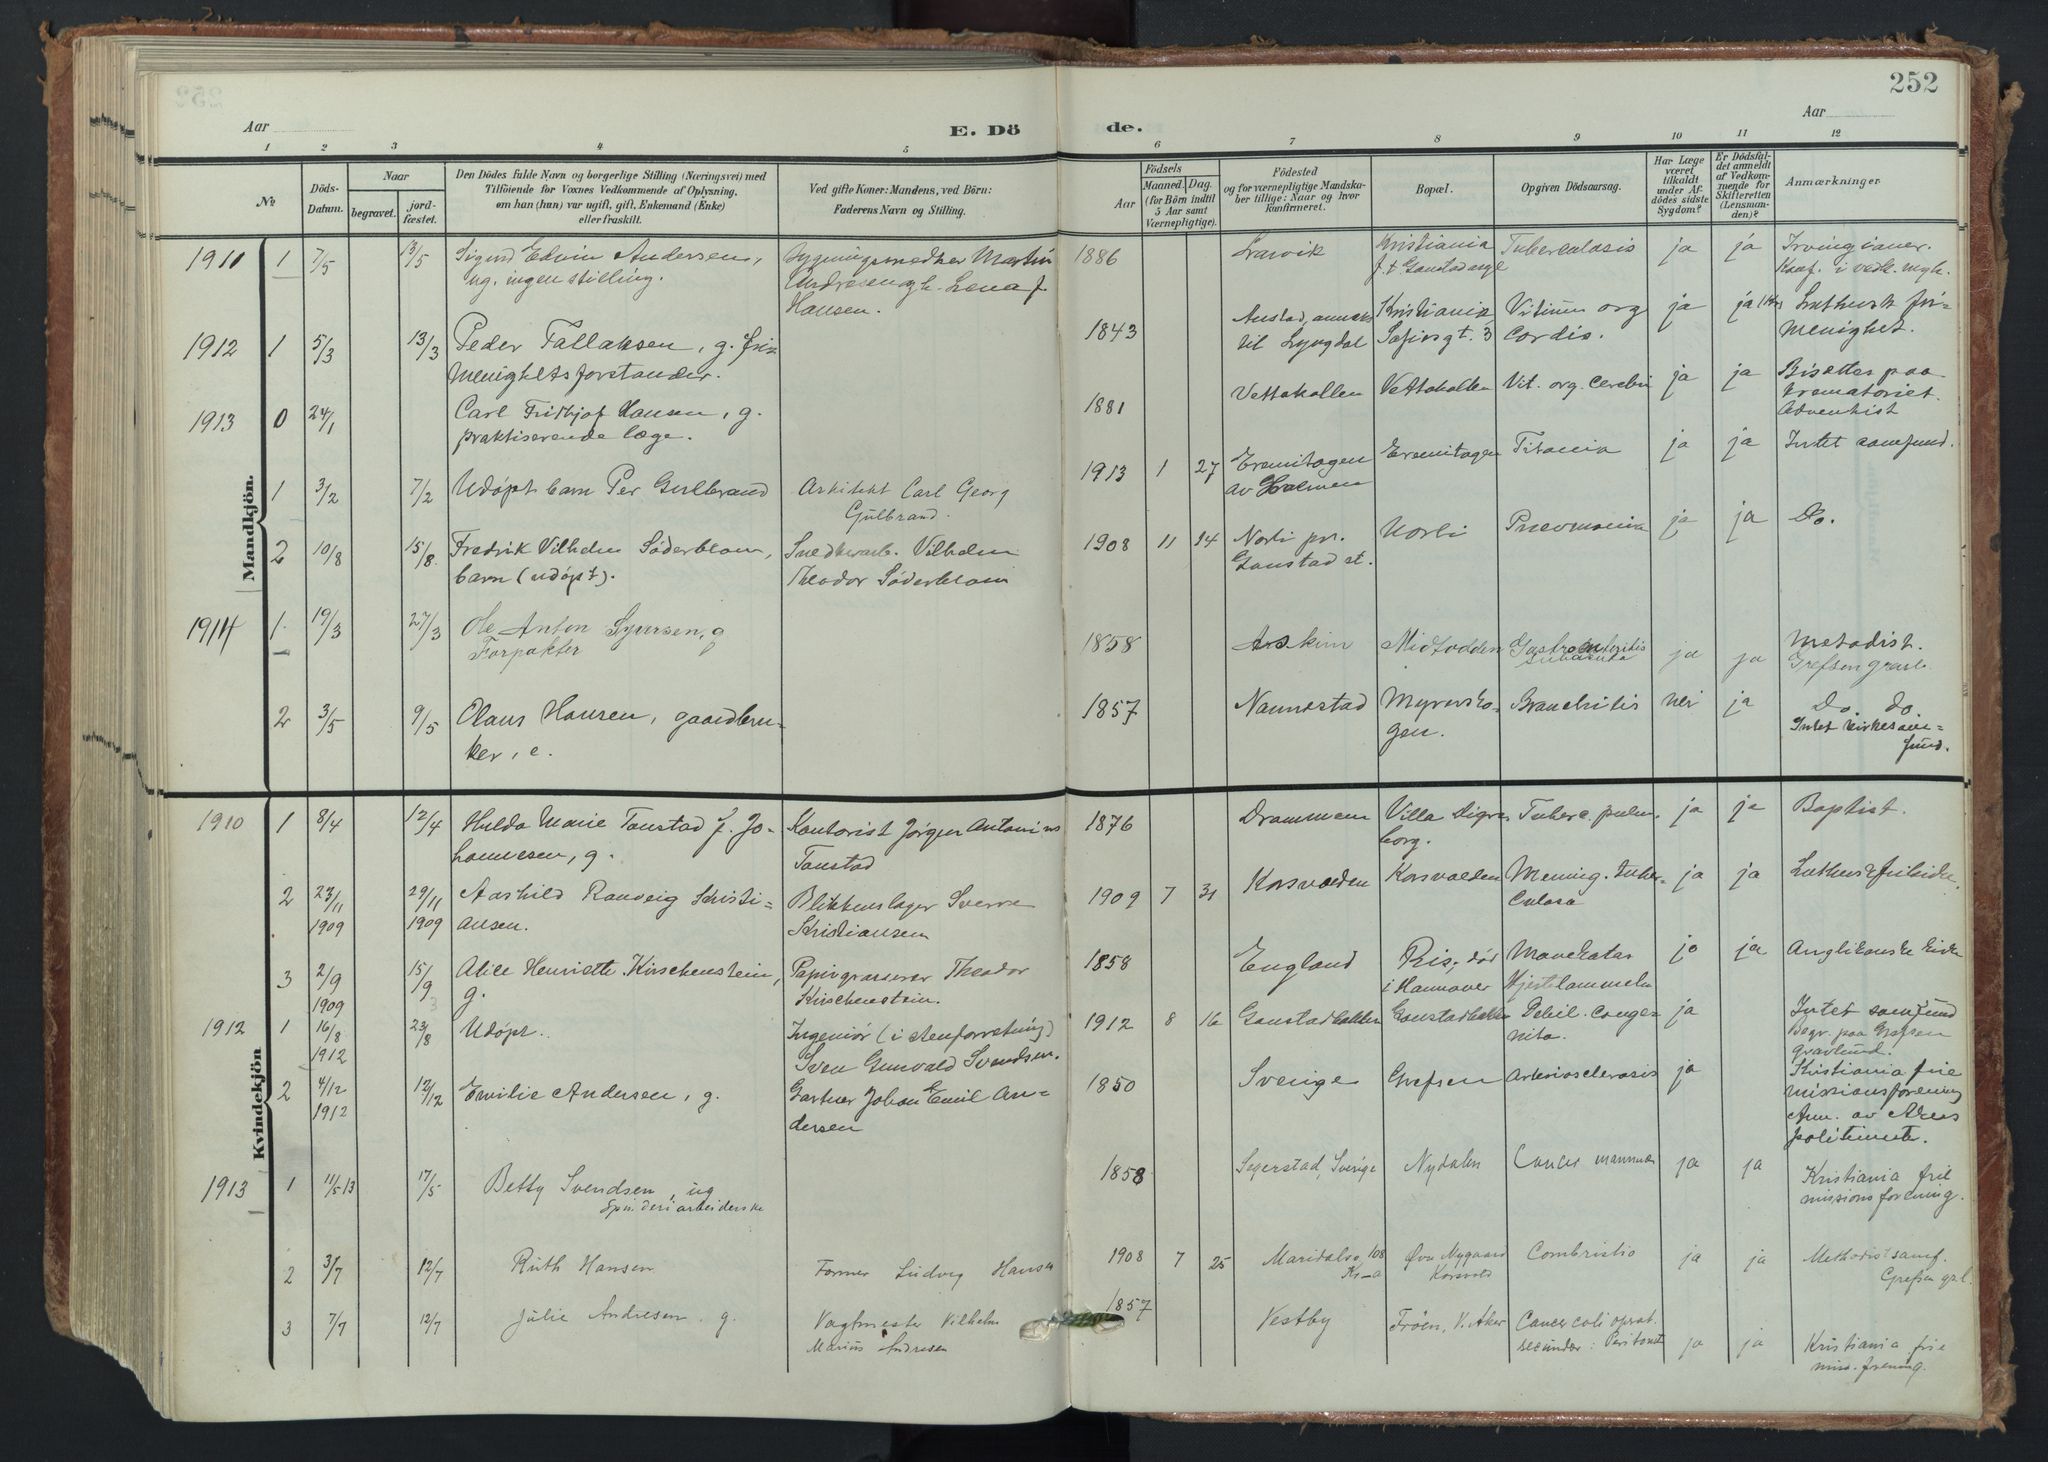 252
Aar
E. Dö
de.
Aar
1 2 3 4 5 6 7 8 9 10 11 12
No
Döds-Datum.
Naar
begravet.
jord-fæstet.
Den Dödes fulde Navn og borgerlige Stilling (Næringsvei) med
Tilföiende for Voxnes Vedkommende af Oplysning,
om han (hun) var ugift, gift, Enkemand (Enke)
eller fraskilt.
Ved gifte Koner: Mandens, ved Börn:
Faderens Navn og Stilling.
Födsels
Aar
Maaned. Dag.
(for Börn indtil
5 Aar samt
Værnepligtige).
Födested
og for værnepligtige Mandska-
ber tillige: Naar og hvor
konfirmeret.
Bopæl.
Opgiven Dödsaarsag.
Har Læge
været
tilkaldt
under Af-
dödes sidste
Sygdom?
Er Dödsfal-
det anmeldt
af Vedkom-
mende for
Skifteretten
(Lensman-
den)?
Anmærkninger
Mandkjön.
1911 1 7/5 13/5 Sigurd Edvin Andersen, Martin 1886 Larvik Kristiania Tuberculosis ja ja Irvingianer.
ug. ingen stilling. Hansen.
1912 1 5/3 13/3 Peder Tallaksen, g. fri- 1843 til Lyngdal Kristiania Safirsgt. 3 Vitium org cordis. ja ja Luthersk fri-
menighetsforstander. menighet.
1913 0 24/1 Carl Fridtjof Hansen, g. 1881 Vettakollen Vettakollen Vit. org. cerebri ja ja Bisettes paa
praktiserende læge. krematoriet.
Adventist
1 3/2 7/2 Udøpt barn Per Gulbrand Arkitekt Carl Georg 1913 1 27 Eremitagen Eremitagen Titania ja ja Intet samfund.
Gulbrand. av Holmen
2 10/8 15/8 Fredrik Vilhelm Söderblom, Snedkerarb. Vilhelm 1908 11 14 Norli pr. Norli Pneomonia ja ja Do.
barn (udøpt). Theodor Söderblom Gaustad st.
1914 1 19/3 27/3 Ole Anton Syversen, g 1858 Askim Midtodden Gastroenteritis ja ja Metodist.
Forpakter subacuta Grefsen gravl.
2 3/5 9/5 Claus Hansen, gaardbru- 1857 Nannestad Myrersko- Bronchitis nei ja Do. do.
ker, e. gen. Intet kirkesam-
fund.
Kvindekjön
1910 1 8/4 12/4 Hulda Marie Tanstad f. Jo- Kontorist Jörgen Antonius 1876 Drammen Villa Tuberc. pulm. ja ja Baptist.
hannesen, g. Tanstad borg.
2 23/11 1909 29/11 1909 Aashild Ranveig Kristi- Blikkenslager Sverre 1909 7 31 Korsvolden Korsvolden Mening. tuber- ja ja Luthersk frikirke.
ansen. Kristiansen culosa
3 2/9 1909 15/9 Alice Henriette Kirschenstein, Theodor 1858 England Ris, død ja ja Anglikanske kirke
g. Kirschenstein. i Hannover
1912 1 16/8 1912 23/8 Udöpt. Ingeniör (i stenforretning) 1912 8 16 Gaustadbakken Gaustadbakken Debil. conge- ja Intet samfund
Sven Gunvald Svendsen. nita. Begr. paa Grefsen
gravlund.
2 4/12 1912 12/12 Emilie Andersen, g. Gartner Johan Emil An- 1850 Sverige Grefsen Arteriosclerosis ja Kristiania frie
dersen missionsforening
Anm. av Akers
politimester.
1913 1 11/5 13 17/5 Betty Svendsen, ug 1858 Segerstad, Sverige Nydalen Cancer mammae ja ja Kristiania frie
Spinderiarbeiderske missionsforening.
2 3/7 12/7 Ruth Hansen Former Ludvig Hansen 1908 7 25 Maridalsv. 108 Øvre Nygaard Combristio ja ja Methodistsamf.
Kr-a Korsvold Grefsen gr.l.
3 7/7 12/7 Julie Andresen, g. Vagtmester Vilhelm 1857 Vestby Fröen, V. Aker Cancer coli oprat. ja ja Kristiania frie
Marius Andresen secundær: Peritonit miss. forening.